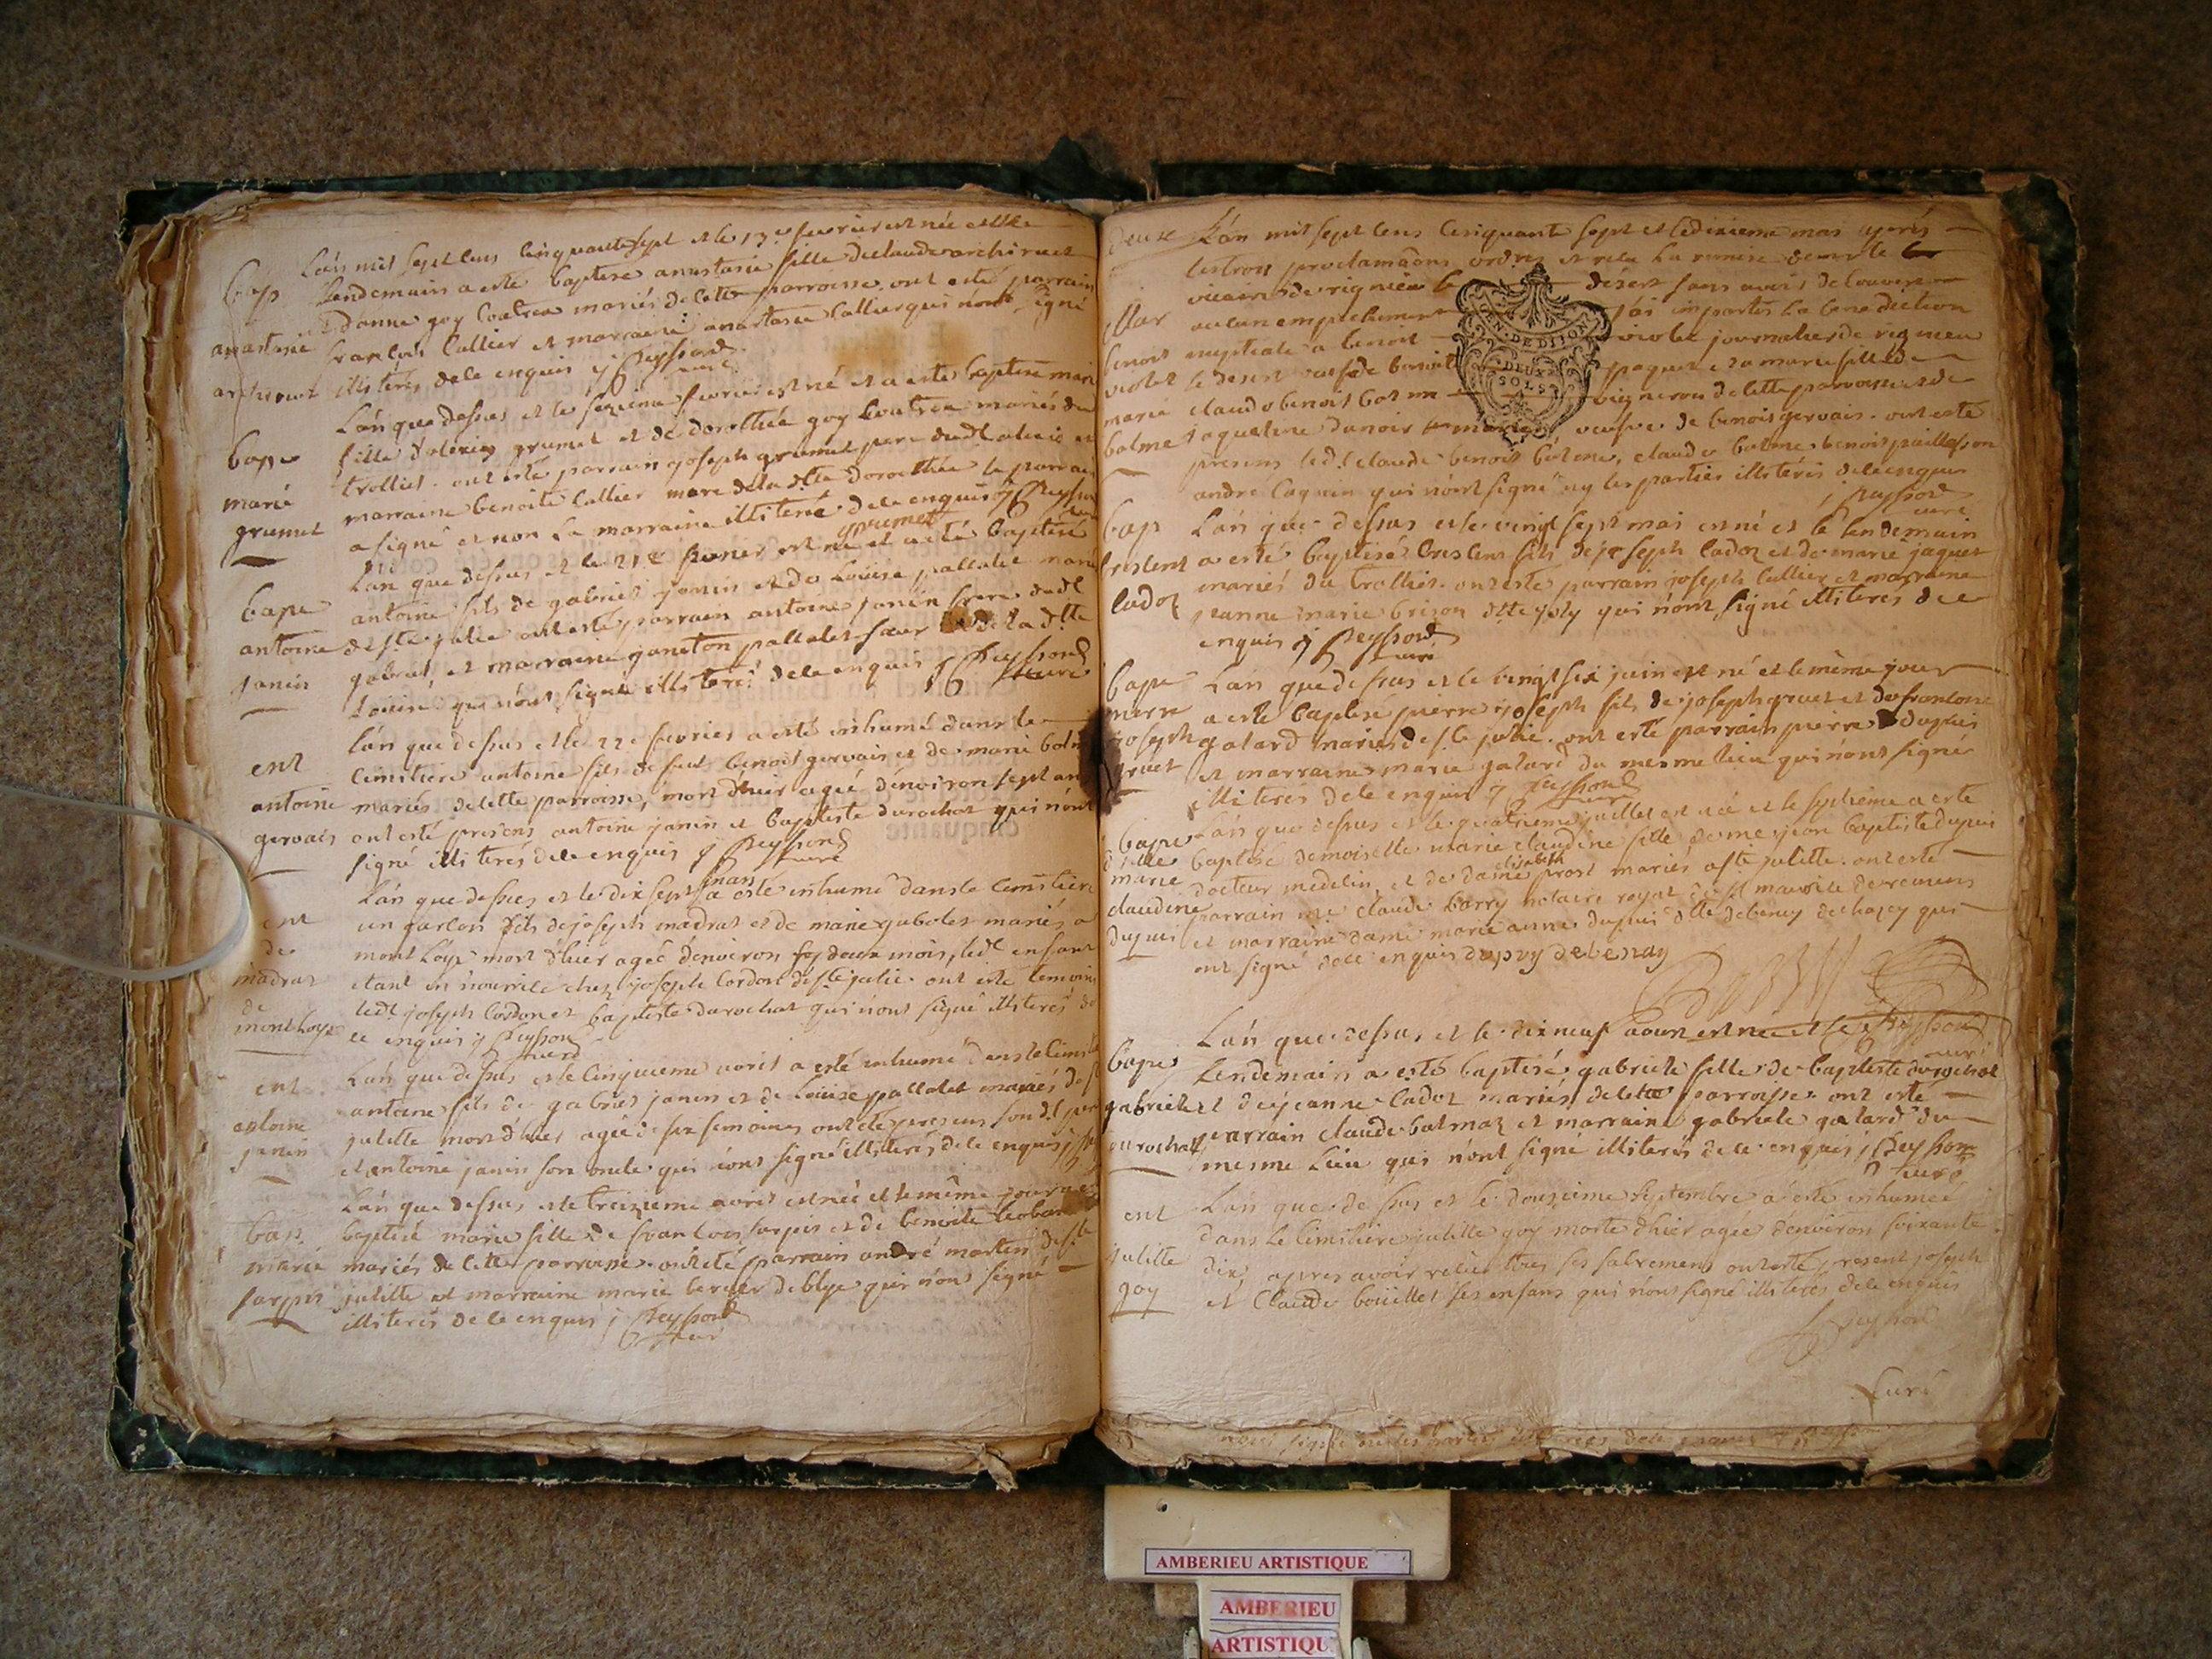 L'an mil sept cens cinquante sept et le 13e fevrier est née et le
bap
lendemain a esté baptisée anastasie fille de claude archiruet
anastasie
et danne goy coutrea mariés de cette parroisse. ont esté parrain
archiruet
françois Cullier et marraine anastasie Cullier qui n'ont signé
illiterés de ce enquis j Peyssond
curé
L'an que dessus et le sezieme fevrier est né et a esté baptisée marie
bape
fille d'alexis grumet et de dorothée goy coutrea mariés du
marie
trolliet. ont esté parrain joseph grumet pere dudt alexis et
grumet
marraine benoite Cullier mere de la dtte dorothée le parrain
a signé et non la marraine illiterée de ce enquis j Peyssond
grumet
L'an que dessus et le 21e fevrier est né et a eté baptisé
bape
antoine fils de gabriel janin et de Loüise pallalet mariés
antoine
de ste julie ont esté parrain antoine janin frere dudt
janin
gabriel et marraine janeton pallalet sœur de la dtte
Loüise qui n'ont signé illiterés de ce enquis j Peyssond
curé
L'an que dessus et le 22e fevrier a esté inhumé dans le
ent
cimitiere antoine fils de feu benoit gervais et de marie balme
antoine
mariés de cette parroisse, mort d'hier agé d'environ sept ans
gervais
ont esté presens antoine janin et baptiste durochat qui n'ont
signé illiterés de ce enquis j Peyssond
curé
mars
L'an que dessus et le dix sept a esté inhumé dans le cimitiere
ent
un garçon fils de joseph madras et de marie gabolet mariés a
de
mont Loye mort d'hier agé d'environ deux mois, ledt enfant
madras
etant en nourrice chez joseph Cordon de ste julie. ont esté temoins
de
ledt joseph Cordon et baptiste durochat qui n'ont signé illiterés de
montloye
ce enquis j Peyssond
curé
L'an que dessus et le cinquieme avril a esté inhumé dans le cimitiere
ent
antoine fils de gabriel janin et de Loüise pallalet mariés de ste
antoine
julitte mort d'hier agé de six semaines ont eté presens son dt pere
janin
et antoine janin son oncle qui n'ont signé illiterés de ce enquis j
L'an que dessus et le treizieme avril est née et le même jour a eté
bap
baptisé marie fille de francois sarpin et de benoite
marie
mariés de cette parroisse. ont eté parrain andré martin de ste
sarpin
julitte et marraine marie berger de blye qui n'ont signé
illiterés de ce enquis j Peyssond
curé
deuxe
L'an mil sept cens cinquante sept et le dixieme mai après
les trois proclamaõns ordres et relu la remise de
vicaire de rignieu le desert sans avoir decouvert
mar
aucun empechement j'ai impartis la benediction
benoit
nuptiale a benoit violet journalier de rigneu
violet
le desert veuf de benoite paquet et a marie fille de
marie
claude benoit balme vigneron de cette parroisse et de
balme
jaqueline dunoir veufve de benoit gervais. ont esté
presens ledt claude benoit balme, claude balme benoit paillasson
andré Caguin qui n'ont signé ny les parties illiterés de ce enquis
j Peyssond
curé
GEN. DE DIJON
DEUX
SOLS
bap
L'an que dessus et le vingt sept mai est né et le lendemain
a esté baptisé Crescent fils de joseph Cadoz et de marie jaquet
cadoz
mariés du trolliet. ont esté parrain joseph Cullier et marraine
jeanne marie brison dtte joly qui n'ont signé illiterés de ce
enquis j Peyssond
curé
bape
L'an que dessus et le vingt six juin est né et le même jour
pierre
a esté baptisé pierre joseph fils de joseph gruet et de francoise
joseph
galard mariés de ste julie. ont esté parrain pierre dupuis
gruet
et marraine marie galard du mesme lieu qui n'ont signé
illiterés de ce enquis j Peyssond
curé
bape
L'an que dessus et le quatrieme juillet est née et le septieme a esté
dlle
baptisé demoiselle marie claudine fille de me jean baptiste dupui
marie
elisabeth
docteur medecin, et de dame prost mariés a ste julitte. ont esté
claudine
parrain me claude barry notaire royal de st maurice de remens
dupui
et marraine dame marie anne dupui dtte debeney de chazey qui
ont signé de ce enquis dupuy de benay
Peyssond
curé
L'an que dessus et le dix neuf aoust est né et le
bape
lendemain a esté baptisé gabriele fille de baptiste durochat
gabriele
et de jeanne Cadoz mariés de cette parroisse. ont esté
durochat
parrain claude balmaz et marraine gabriele galard du
mesme lieu qui n'ont signé illiterés de ce enquis j Peyssond
curé
ent
L'an que dessus et le douzieme septembre a esté inhumeé
dans le cimitiere julitte goy morte d'hier agée d'environ soixante
julitte
dix, apres avoir reçu tous ses sacremens ont esté present joseph
goy
et Claude boüillet ses enfans qui n'ont signé illiterés de ce enquis
Peyssond
Curé
AMBERIEU ARTISTIQUE
AMBERIEU
ARTISTIQU